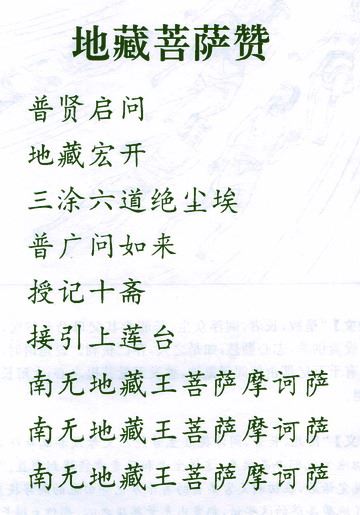 地藏菩萨赞
普贤启问
地藏宏开
三涂六道绝尘埃
普广问如来
授记十斋
接引上莲台
南无地藏王菩萨摩诃萨
南无地藏王菩萨摩诃萨
南无地藏王菩萨摩诃萨